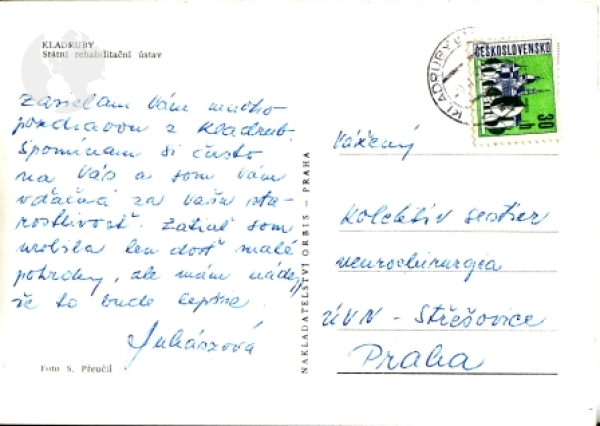 KLADRUBY
Státní rehabilitační ústav
Zasielam Vám mnoho
pozdravov z Kladrub.
Spomínam si často
na Vás a som Vám
vďačná za Vašu sta-
rostlivosť. Zatiaľ som
urobila len dosť malé
pokroky, ale mám nádej
že to bude lepšie.
Juhászová
Foto S. Přeučil
NAKLADATELSTVÍ ORBIS – PRAHA
KLADRUBY
ČESKOSLOVENSKO
30 h
Vážený
Kolektív sestier
neurochirurgia
ÚVN - Střešovice
Praha